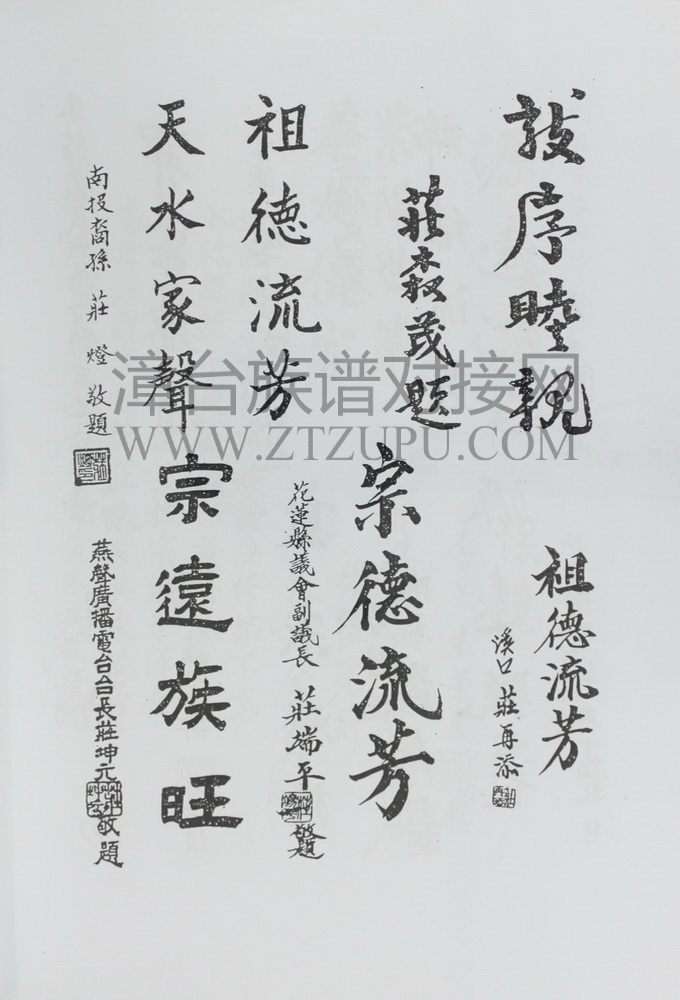 敍序睦親
莊森茂題
祖德流芳
溪口 莊再添
宗德流芳
花蓮縣議會副議長 莊端平 敬題
祖德流芳
天水家聲
南投裔孫 莊燈 敬題
宗遠族旺
燕聲廣播電台台長莊坤元敬題
漳台族谱对接网
WWW.ZTZUPU.COM